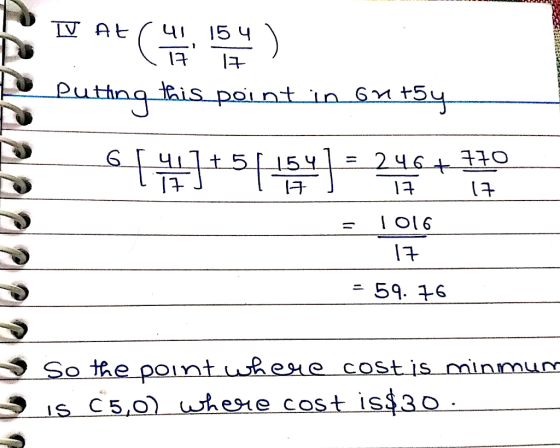 IV At (41/17, 154/17)
Putting this point in 6x+5y
6 [41/17] + 5 [154/17] = 246/17 + 770/17
= 1016/17
= 59.76
So the point where cost is minmum
is (5,0) where cost is $30.